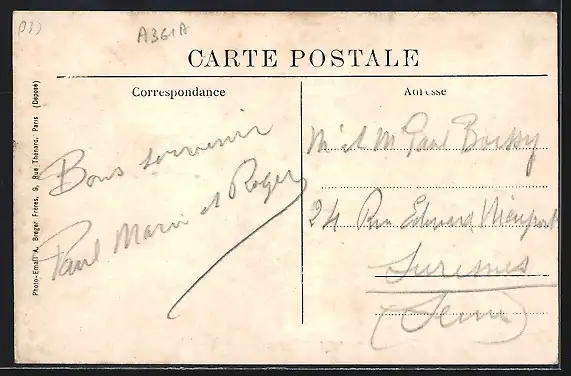 A361A
CARTE POSTALE
Correspondance
Adresse
Bons souvenir
Paul Marie et Roger
Mr et M Paul Boissy
24 Rue Edouard Nieuport
Suresnes
(Seine)
Photo-Email A. Breger Frères, 9, Rue Thénard, Paris (Déposé)